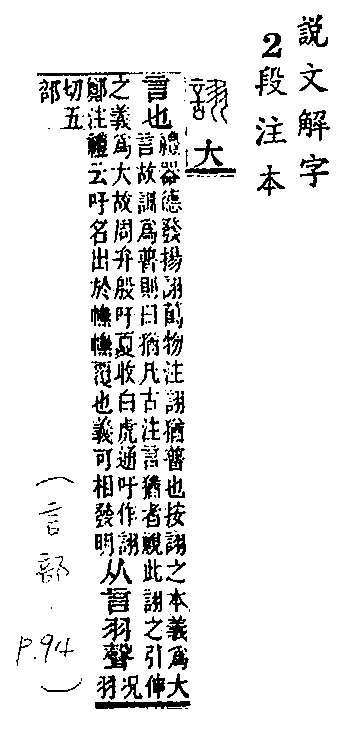 說文解字
2段注本
詡 大
言也禮器德發揚詡萬物注詡猶普也按詡之本義爲大
言故訓爲普則曰猶凡古注言猶者視此詡之引伸
之義爲大故周弁殷吁夏收白虎通吁作詡
鄭注禮云吁名出於幠幠覆也義可相發明从言羽聲況羽
切五
部
(言部．P.94)